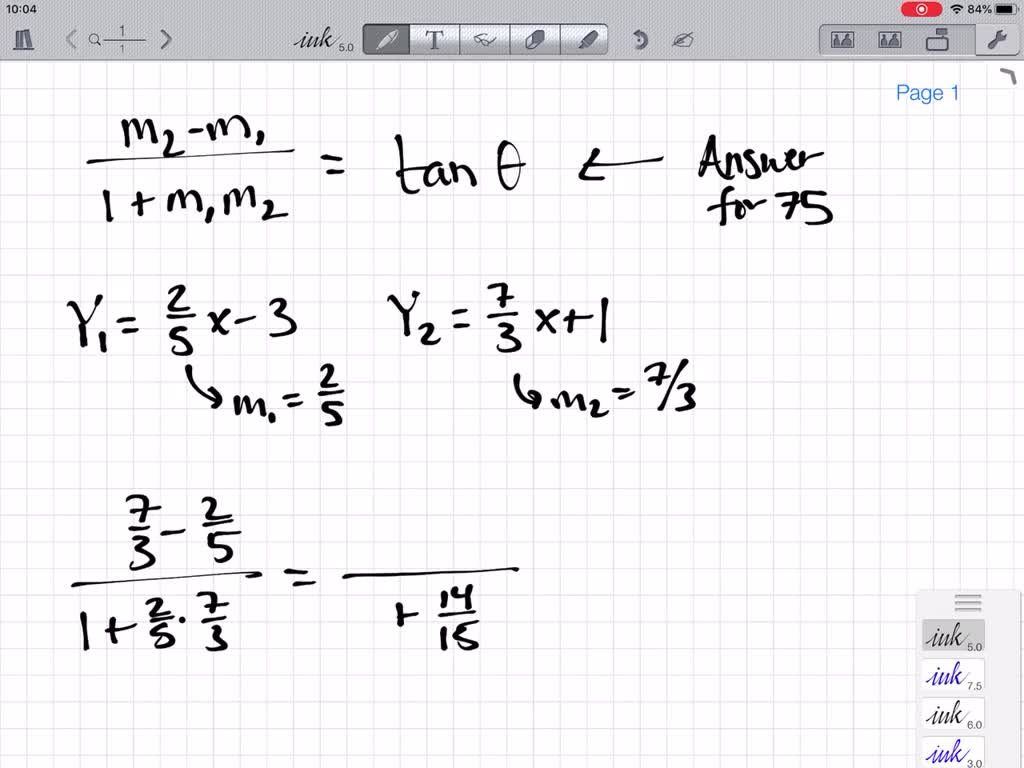 10:04 84%
1/1 ink 5.0 T
Page 1
m₂-m₁ / 1+m₁m₂ = tan θ ← Answer
for 75
Y₁ = 2/5 x - 3 Y₂ = 7/3 x + 1
↳ m₁ = 2/5 ↳ m₂ = 7/3
7/3 - 2/5 / 1 + 2/5 · 7/3 = / + 14/15
ink 5.0
ink 7.5
ink 6.0
ink 3.0